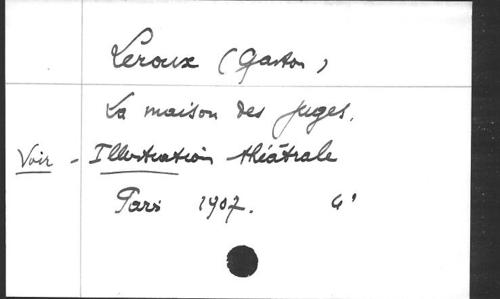 Leroux (Gaston)
La maison des juges.
Voir - Illustration théâtrale
Paris 1907. 4°